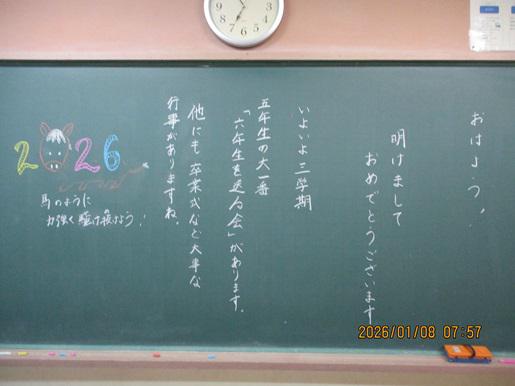 おはよう!
明けまして
おめでとうございます
いよいよ三学期
五年生の大一番
「六年生を送る会」があります。
他にも卒業式など大事な
行事がありますね。
2026
馬のように
力強く駆け抜けよう!
2026/01/08 07:57